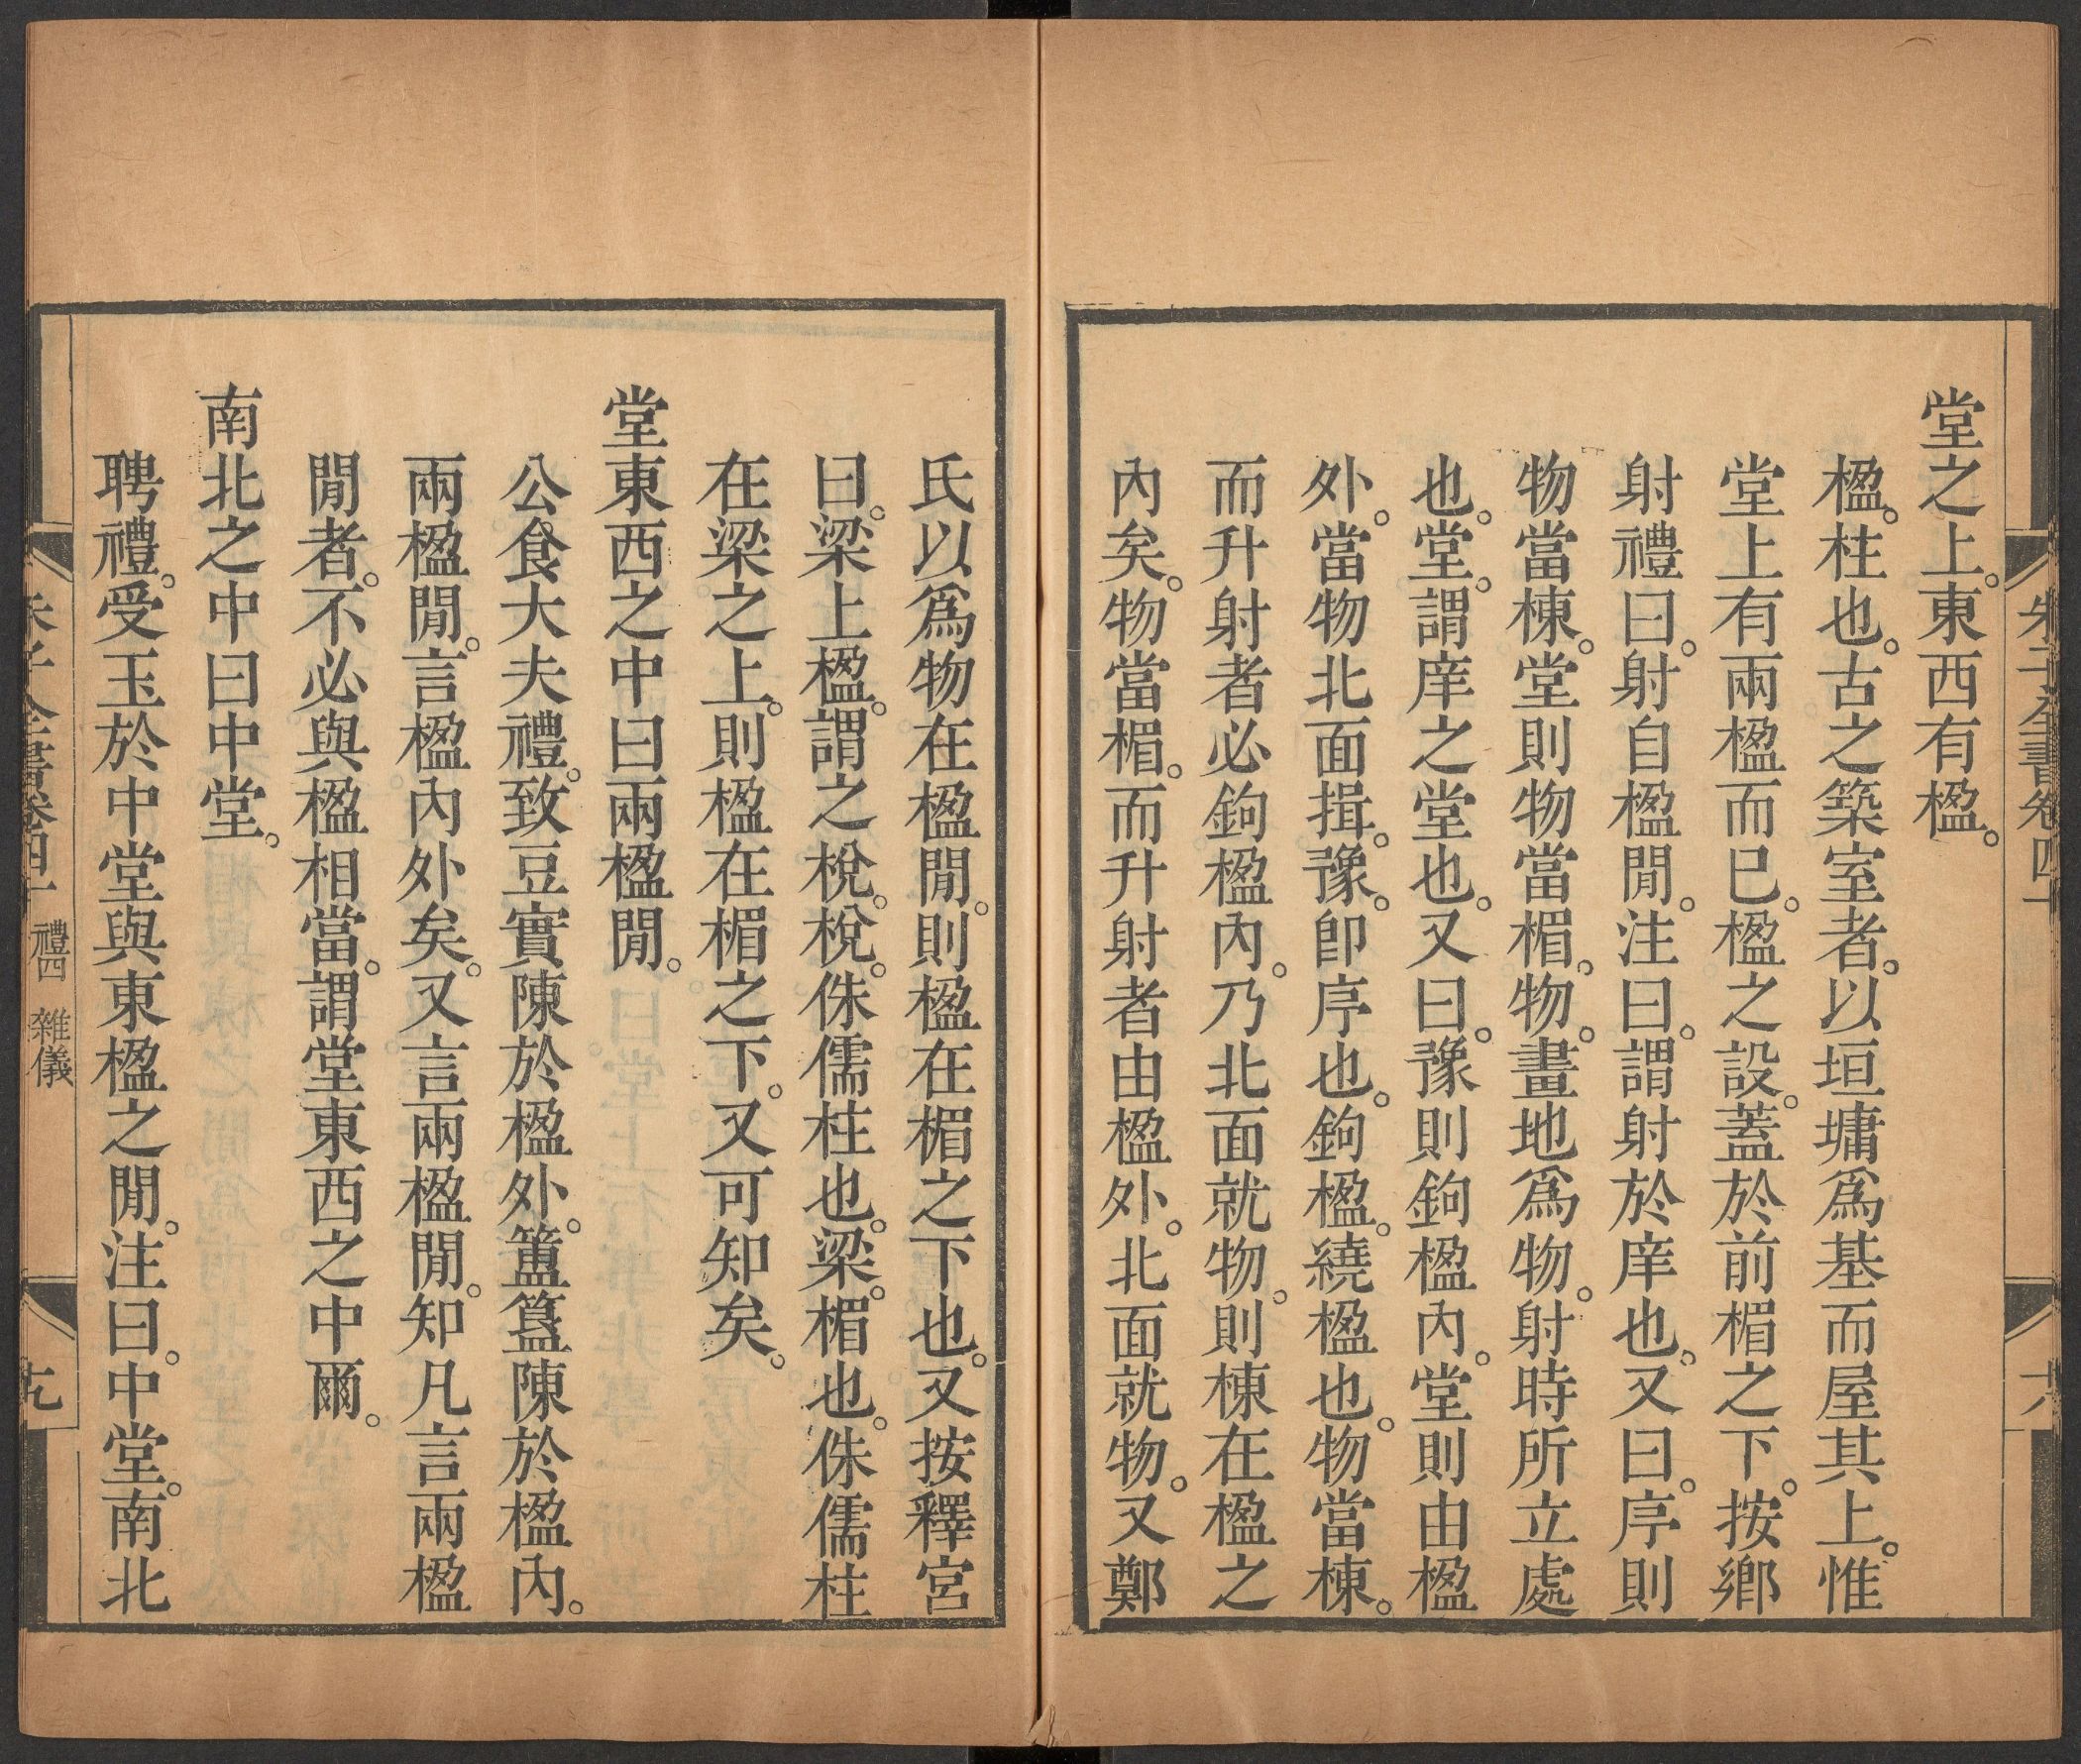 堂之上。東西有楹。
楹。柱也。古之築室者。以垣墉爲基而屋其上。惟
堂上有兩楹而已。楹之設。蓋於前楣之下。按鄉
射禮曰。射自楹閒。注曰。謂射於庠也。又曰。序則
物當棟。堂則物當楣。物。畫地爲物。射時所立處
也。堂。謂庠之堂也。又曰。豫則鉤楹內。堂則由楹
外。當物北面揖。豫。卽序也。鉤楹。繞楹也。物當棟。
而升射者必鉤楹內。乃北面就物。則棟在楹之
內矣。物當楣。而升射者由楹外。北面就物。又鄭
朱子全書卷四十
十八
氏以爲物在楹閒。則楹在楣之下也。又按釋宮
曰。梁上楹。謂之梲。梲。侏儒柱也。梁。楣也。侏儒柱
在梁之上。則楹在楣之下。又可知矣。
堂東西之中曰兩楹閒。
公食大夫禮。致豆實陳於楹外。簠簋陳於楹內。
兩楹閒。言楹內外矣。又言兩楹閒。知凡言兩楹
閒者。不必與楹相當。謂堂東西之中爾。
南北之中曰中堂。
聘禮。受玉於中堂與東楹之閒。注曰。中堂。南北
朱子全書卷四十 禮四 雜儀